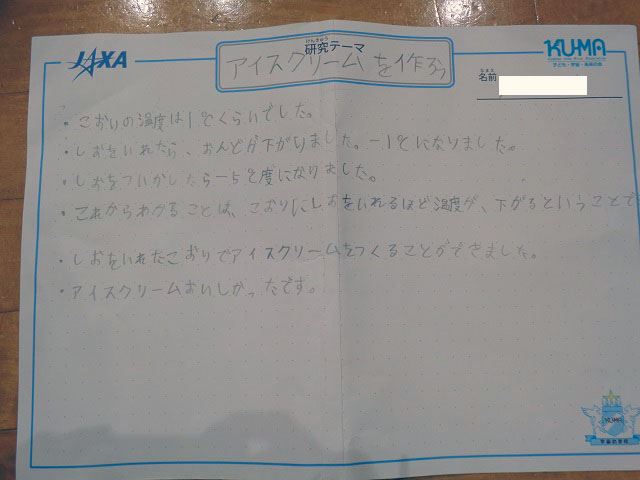 JAXA
けんきゅう
研究テーマ
アイスクリームを作ろう
KU-MA
子ども・宇宙・未来の会
なまえ
名前
・こおりの温度は1℃くらいでした。
・しおをいれたら、おんどが下がりました。-1℃になりました。
・しおをついかしたら-5℃度になりました。
・これからわかることは、こおりにしおをいれるほど温度が、下がるということで
・しおをいれたこおりでアイスクリームをつくることができました。
・アイスクリームおいしかったです。
KU-MA
宇宙の学校